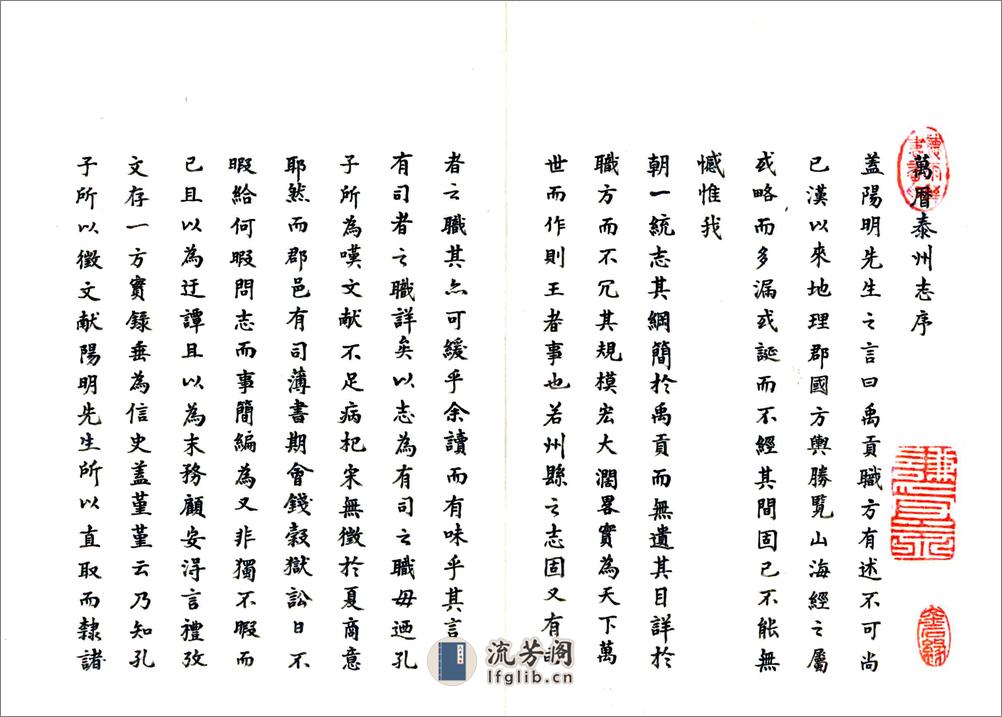 萬曆泰州志序
蓋陽明先生之言曰禹貢職方有述不可尚
已漢以來地理郡國方輿勝覽山海經之屬
或略而多漏或誕而不經其間固已不能無
憾惟我
朝一統志其綱簡於禹貢而無遺其目詳於
職方而不冗其規模宏大濶畧實為天下萬
世而作則王者事也若州縣之志固又有
者之職其亦可緩乎余讀而有味乎其言
有司者之職詳矣以志為有司之職毋迺孔
子所為嘆文献不足病杞宋無徵於夏商意
耶然而郡邑有司薄書期會錢穀獄訟日不
暇給何暇問志而事簡編為又非獨不暇而
已且以為迂譚且以為末務顧安淂言禮攷
文存一方實錄垂為信史蓋堇堇云乃知孔
子所以徵文献陽明先生所以直取而隸諸
流芳阁
lfglib.cn